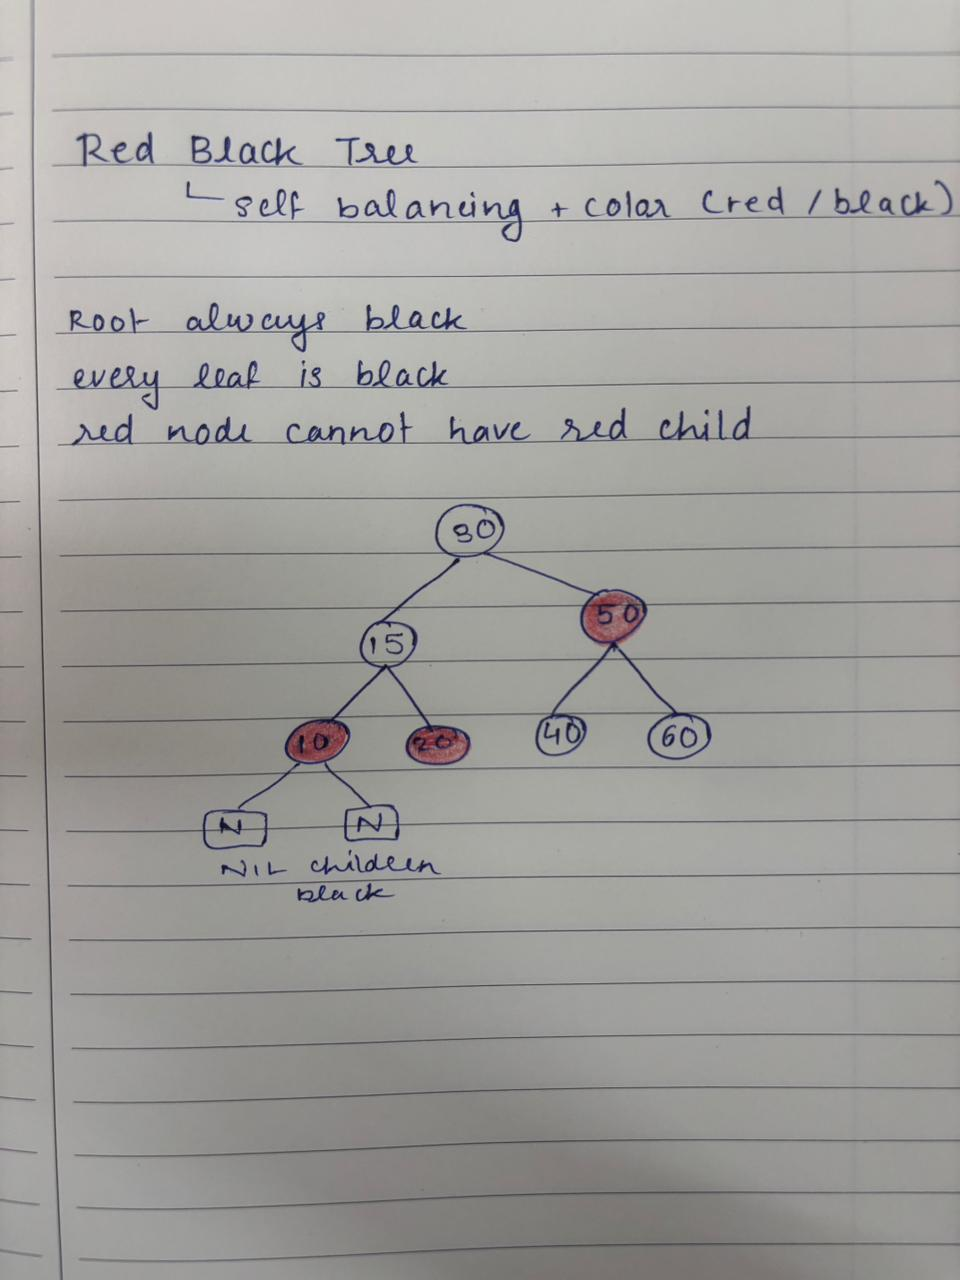 Red Black Tree
self balancing + color (red / black)
Root always black
every leaf is black
red node cannot have red child
30
50
15
10 20 40 60
N N
NIL children
black